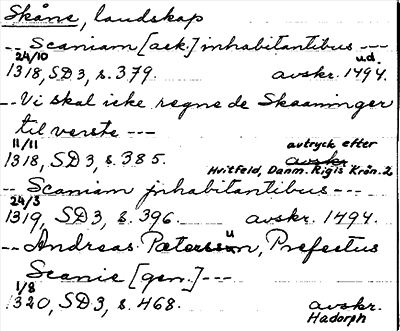 Skåne, landskap
--- Scaniam [ack.] inhabitantibus ---
24/10 u.d.
1318, SD 3, s. 379. avskr. 1494.
--- Vi skal icke regne de Skaaninger
til verste ---
11/11 avtryck efter
1318, SD 3, s. 385. avskr.
Hvitfeld, Danm. Rigis Krön. 2
--- Scaniam jnhabitantibus ---
24/3
1319, SD 3, s. 396. avskr. 1494.
--- Andreas Petersun, Prefectus
Scanie [gen.] ---
1/8
1320, SD 3, s. 468. avskr.
Hadorph